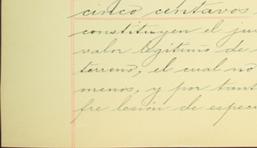 cinco centavos
constituyen el ju
valor legitimo de
terreno, el cual no
menos, y por tant
fre lesión de especi